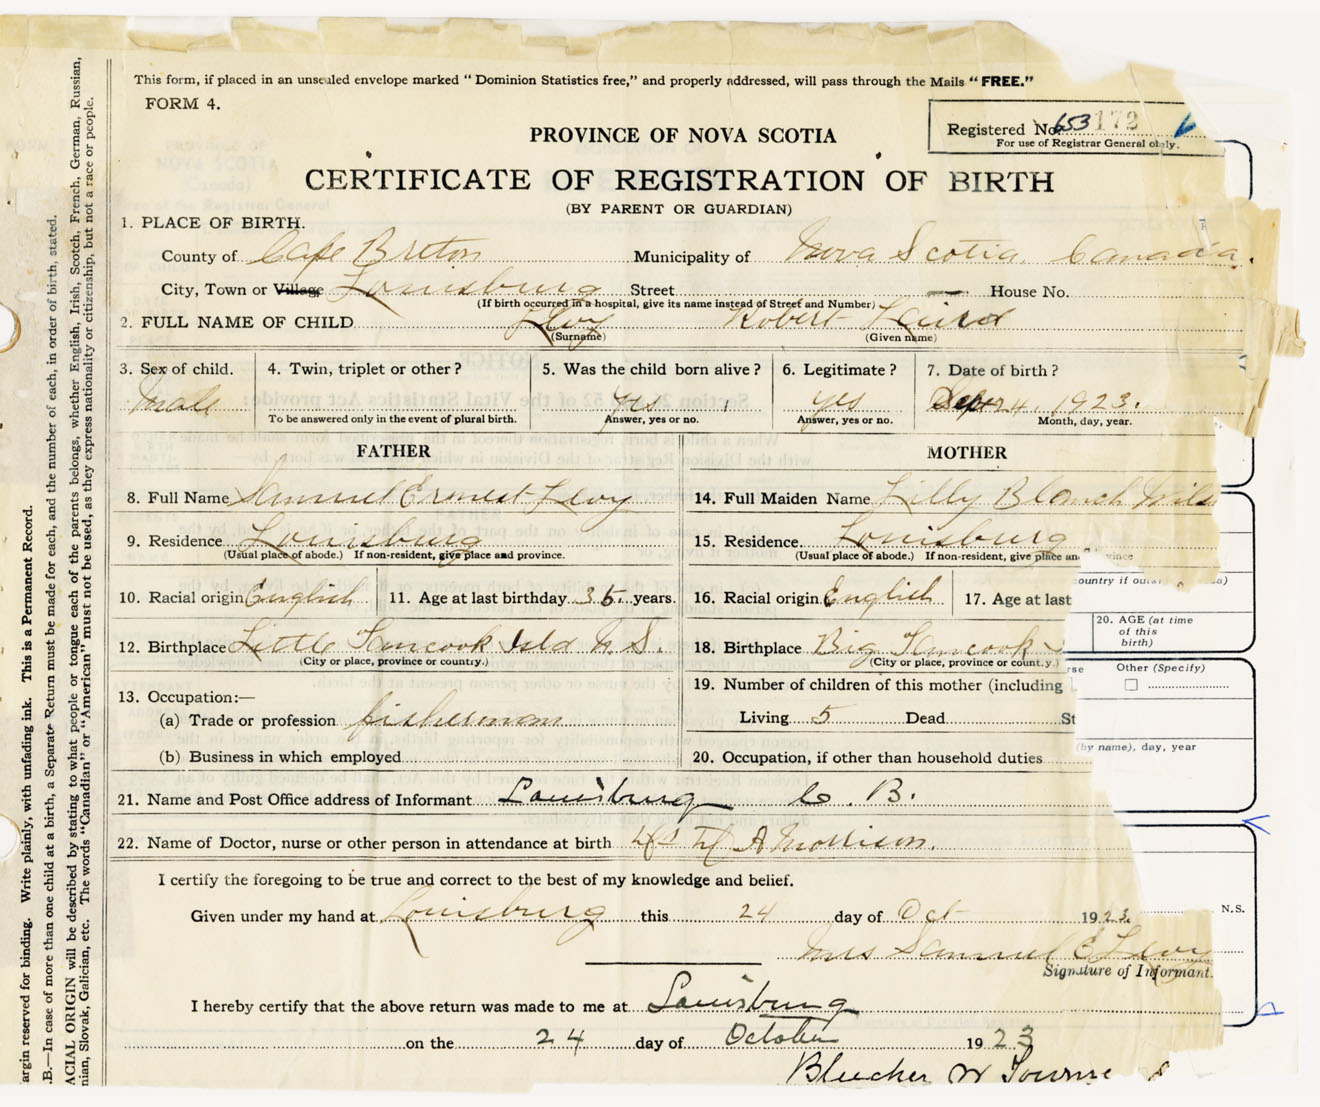 This form, if placed in an unsealed envelope marked “Dominion Statistics free,” and properly addressed, will pass through the Mails “FREE.”
FORM 4.
Registered No. 653 172
For use of Registrar General only.
PROVINCE OF NOVA SCOTIA
CERTIFICATE OF REGISTRATION OF BIRTH
(BY PARENT OR GUARDIAN)
1. PLACE OF BIRTH.
County of Cape Breton Municipality of Nova Scotia. Canada.
City, Town or Village Louisburg Street — House No.
(If birth occurred in a hospital, give its name instead of Street and Number)
2. FULL NAME OF CHILD Levy Robert Laird
(Surname) (Given name)
3. Sex of child. 4. Twin, triplet or other? 5. Was the child born alive? 6. Legitimate? 7. Date of birth?
male yes yes Sept 24. 1923.
To be answered only in the event of plural birth. Answer, yes or no. Answer, yes or no. Month, day, year.
FATHER MOTHER
8. Full Name Samuel Ernest Levy 14. Full Maiden Name Lilly Blanch
9. Residence Louisburg 15. Residence Louisburg
(Usual place of abode.) If non-resident, give place and province. (Usual place of abode.) If non-resident, give place an vince
country if outs
10. Racial origin English 11. Age at last birthday 35 years. 16. Racial origin English 17. Age at last
20. AGE (at time
of this
birth)
12. Birthplace Little Tancook Isld N S. 18. Birthplace Big Tancook
(City or place, province or country.) (City or place, province or country.)
rse Other (Specify)
13. Occupation:— 19. Number of children of this mother (including
(a) Trade or profession fisherman Living 5 Dead St
(by name), day, year
(b) Business in which employed 20. Occupation, if other than household duties
21. Name and Post Office address of Informant Louisburg C. B.
22. Name of Doctor, nurse or other person in attendance at birth A Morrison.
I certify the foregoing to be true and correct to the best of my knowledge and belief.
Given under my hand at Louisburg this 24 day of Oct 1923.
N.S.
Mrs Samuel E Levy
Signature of Informant.
I hereby certify that the above return was made to me at Louisburg
on the 24 day of October 1923
Bleucher W Townse
argin reserved for binding. Write plainly, with unfading ink. This is a Permanent Record.
.B.—In case of more than one child at a birth, a Separate Return must be made for each, and the number of each, in order of birth, stated.
ACIAL ORIGIN will be described by stating to what people or tongue each of the parents belongs, whether English, Irish, Scotch, French, German, Russian,
nian, Slovak, Galician, etc. The words “Canadian” or “American” must not be used, as they express nationality or citizenship, but not a race or people.